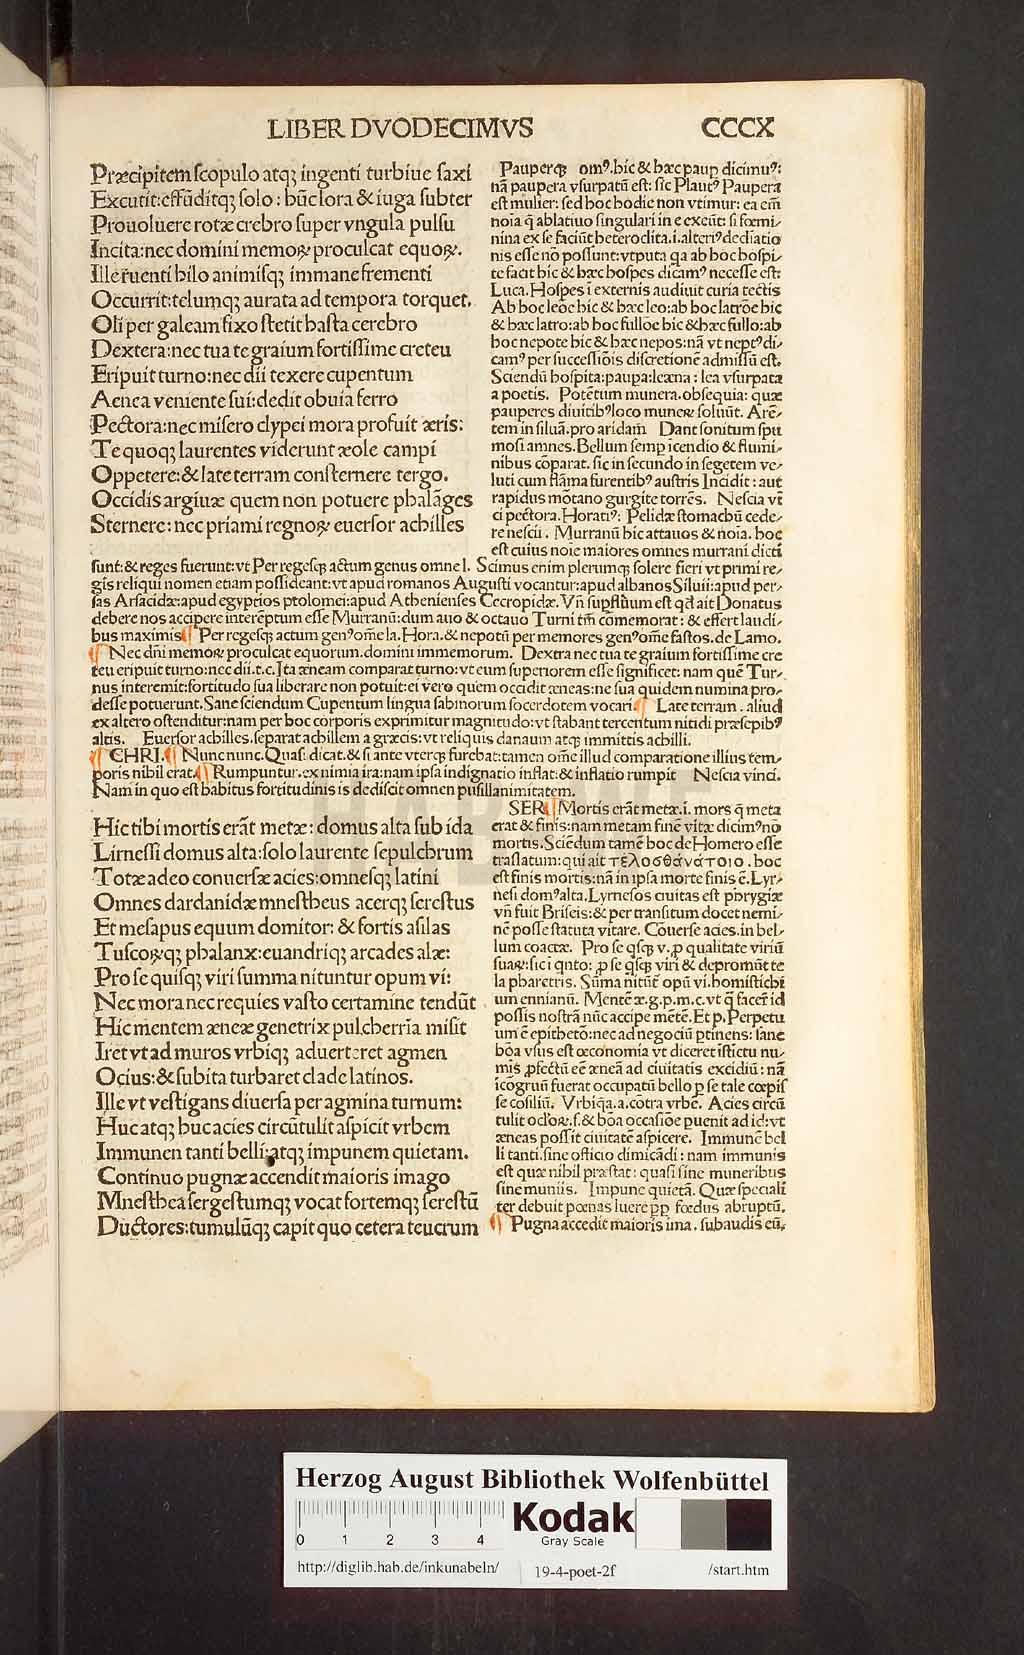 LIBER DVODECIMVS CCCX
Præcipitem scopulo atqȝ ingenti turbine saxi
Excutit: effūditqȝ solo: hūc lora & iuga subter
Prouoluere rotæ crebro super vngula pulsu
Incita: nec domini memoꝝ proculcat equoꝝ.
Ille ruenti hilo animisqȝ immane frementi
Occurrit: telumqȝ aurata ad tempora torquet.
Oli per galeam fixo stetit hasta cerebro
Dextera: nec tua te graium fortissime creteu
Eripuit turno: nec dii texere cupentum
Aenea veniente sui: dedit obuia ferro
Pectora: nec misero clypei mora profuit æris:
Te quoqȝ laurentes viderunt æole campi
Oppetere: & late terram consternere tergo.
Occidis argiuæ quem non potuere phalāges
Sternere: nec priami regnoꝝ euersor achilles
Pauperqȝ omꝰ. hic & hæc paup dicimuꝰ:
nā paupera vsurpatū est: sic Plautꝰ Paupera
est mulier: sed hoc hodie non vtimur: ea em̄
noīa q̄ ablatiuo singulari in e exeūt: si fœmi-
nina ex se faciūt heteroclita .i. alteriꝰ declinatio
nis esse nō possunt: vtputa qa ab hoc hospi-
te facit hic & hæc hospes dicamꝰ necesse est:
Luca. Hospes ī externis audiuit curia tectis
Ab hoc leōe hic & hæc leo: ab hoc latrōe hic
& hæc latro: ab hoc fullōe hic & hæc fullo: ab
hoc nepote hic & hæc nepos: nā vt neptꝰ di-
camꝰ per successiōis discretionē admissū est.
Sciendū hospita: paupa: leæna: lea vsurpata
a poetis. Potētum munera. obsequia: quæ
pauperes diuitibꝰ loco muneꝝ soluūt. Arē-
tem in siluā. pro aridam Dant sonitum spu
mosi amnes. Bellum semp īcendio & flumi-
nibus cōparat. sic in secundo in segetem ve-
luti cum flāma furentibꝰ austris Incidit: aut
rapidus mōtano gurgite torrēs. Nescia vī
ci pectora. Horatiꝰ: Pelidæ stomachū cede-
re nescii. Murranū hic attauos & noīa. hoc
est cuius noīe maiores omnes murrani dicti
sunt: & reges fuerunt: vt Per regesqȝ actum genus omne l. Scimus enim plerumqȝ solere fieri vt primi re-
gis reliqui nomen etiam possideant: vt apud romanos Augusti vocantur: apud albanos Siluii: apud per-
sas Arsacidæ: apud egyptios ptolomei: apud Athenienses Cecropidæ. Vn̄ supflūum est qd̄ ait Donatus
debere nos accipere interēptum esse Murranū: dum auo & octauo Turni tm̄ comemorat: & effert laudi-
bus maximis ¶ Per regesqȝ actum genꝰ oīme la. Hora. & nepotū per memores genꝰ oīme fastos. de Lamo.
¶ Nec dn̄i memoꝝ proculcat equorum. domini immemorum. Dextra nec tua te graium fortissime cre
teu eripuit turno: nec dii. t. c. Ita æneam comparat turno: vt eum superiorem esse significet: nam quē Tur-
nus interemit: fortitudo sua liberare non potuit: ei vero quem occidit æneas: ne sua quidem numina pro-
desse potuerunt. Sane sciendum Cupentum lingua sabinorum socerdotem vocari ¶ Late terram. aliud
ex altero ostenditur: nam per hoc corporis exprimitur magnitudo: vt stabant tercentum nitidi præsepibꝰ
altis. Euersor achilles. separat achillem a græcis: vt reliquis danaum atqȝ immittis achilli.
¶ CHRI. ¶ Nunc nunc. Quasi dicat. & si ante vterqȝ furebat: tamen om̄e illud comparatione illius tem-
poris nihil erat. ¶ Rumpuntur. ex nimia ira: nam ipsa indignatio inflat: & inflatio rumpit Nescia vinci.
Nam in quo est habitus fortitudinis is dediscit omnen pusillanimitatem.
Hic tibi mortis erāt metæ: domus alta sub ida
Lirnessi domus alta: solo laurente sepulchrum
Totæ adeo conuersæ acies: omnesqȝ latini
Omnes dardanidæ mnestheus acerqȝ serestus
Et mesapus equum domitor: & fortis asilas
Tuscoꝝqȝ phalanx: euandriqȝ arcades alæ:
Pro se quisqȝ viri summa nituntur opum vi:
Nec mora nec requies vasto certamine tendūt
Hic mentem æneæ genetrix pulcherrīa misit
Iret vt ad muros vrbiqȝ aduerteret agmen
Ocius: & subita turbaret clade latinos.
Ille vt vestigans diuersa per agmina turnum:
Huc atqȝ huc acies circūtulit aspicit vrbem
Immunen tanti belli: atqȝ impunem quietam.
Continuo pugnæ accendit maioris imago
Mnesthea sergestumqȝ vocat fortemqȝ serestū
Ductores: tumulūqȝ capit quo cetera teucrum
SER ¶ Mortis erāt metæ .i. mors q̄ meta
erat & finis: nam metam finē vitæ dicimꝰ nō
mortis. Sciēdum tamē hoc de Homero esse
traslatum: qui ait τελοσθάνάτοιο. hoc
est finis mortis: nā in ipsa morte finis ē. Lyr-
nesi domꝰ alta. Lyrnesos ciuitas est phrygiæ
vn̄ fuit Briseis: & per transitum docet nemi-
nē posse statuta vitare. Cōuerse acies. in bel-
lum coactæ. Pro se qsqȝ v. p qualitate viriū
suaꝝ: sic ī qnto: p se qsqȝ viri & depromūt te
la pharetris. Sūma nitūt opū vi. homistichi
um ennianū. Mentē æ. g. p. m. c. vt q̄ facer̄ id
possis nostrā nūc accipe mētē. Et p. Perpetu
um ē epithetō: nec ad negociū ptinens: sane
bōa vsus est œconomia vt diceret īstictu nu-
mis pfectū eē æneā ad ciuitatis excidiū: nā
icōgruū fuerat occupatū bello p se tale cœpis
se cōsiliū. Vrbiqȝ. a. cōtra vrbē. Acies circū
tulit oclꝰoꝝ. s. & bōa occasiōe puenit ad id: vt
æneas possit ciuitatē aspicere. Immunē bel
li tanti. sine officio dimicādi: nam immunis
est quæ nihil præstat: quasi sine muneribus
sine muniis. Impune quietā. Quæ speciali
ter debuit pœnas luere pp fœdus abruptū.
¶ Pugna accedit maioris ima. subaudis eū,
Herzog August Bibliothek Wolfenbüttel
0 1 2 3 4
Kodak
Gray Scale
http://diglib.hab.de/inkunabeln/ 19-4-poet-2f /start.htm